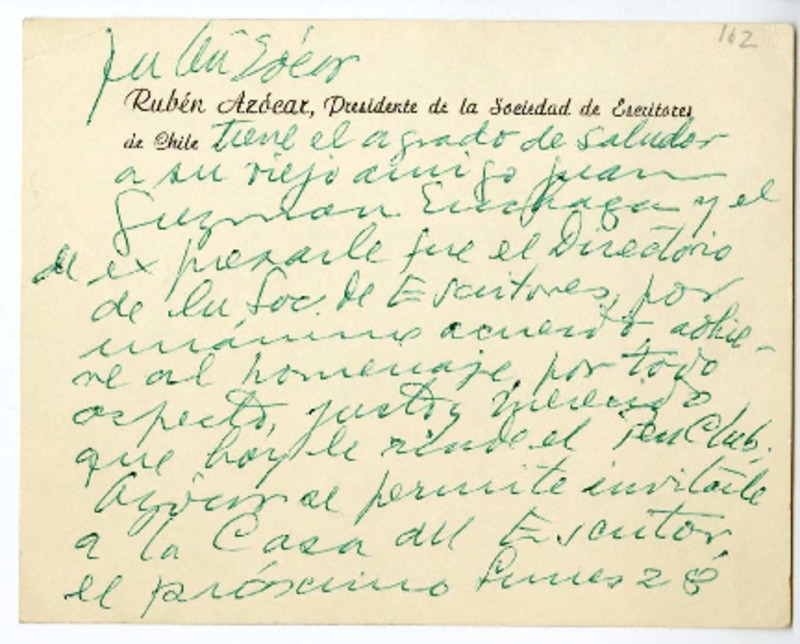 162
Rubén Azócar, Presidente de la Sociedad de Escritores
de Chile tiene el agrado de saludar
a su viejo amigo Juan
Guzmán Cruchaga y el
de expresarle que el Directorio
de la Soc. de Escritores, por
unánime acuerdo adhie-
re al homenaje, por todo
aspecto, justo y merecido
que hoy le rinde el Pen Club.
Azócar se permite invitarle
a la Casa del Escritor,
el próximo lunes 28